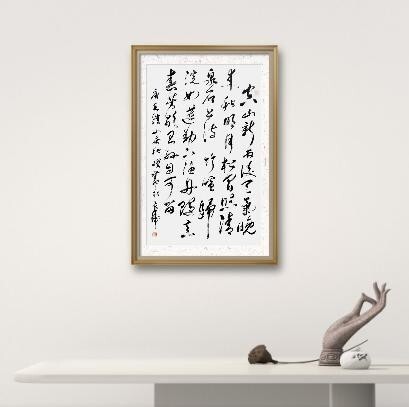 空山新雨后天氣晚
来秋明月松間照清
泉石上流竹喧歸
浣女蓮動下漁舟隨意
春芳歇王孫自可留
唐王維山居秋暝